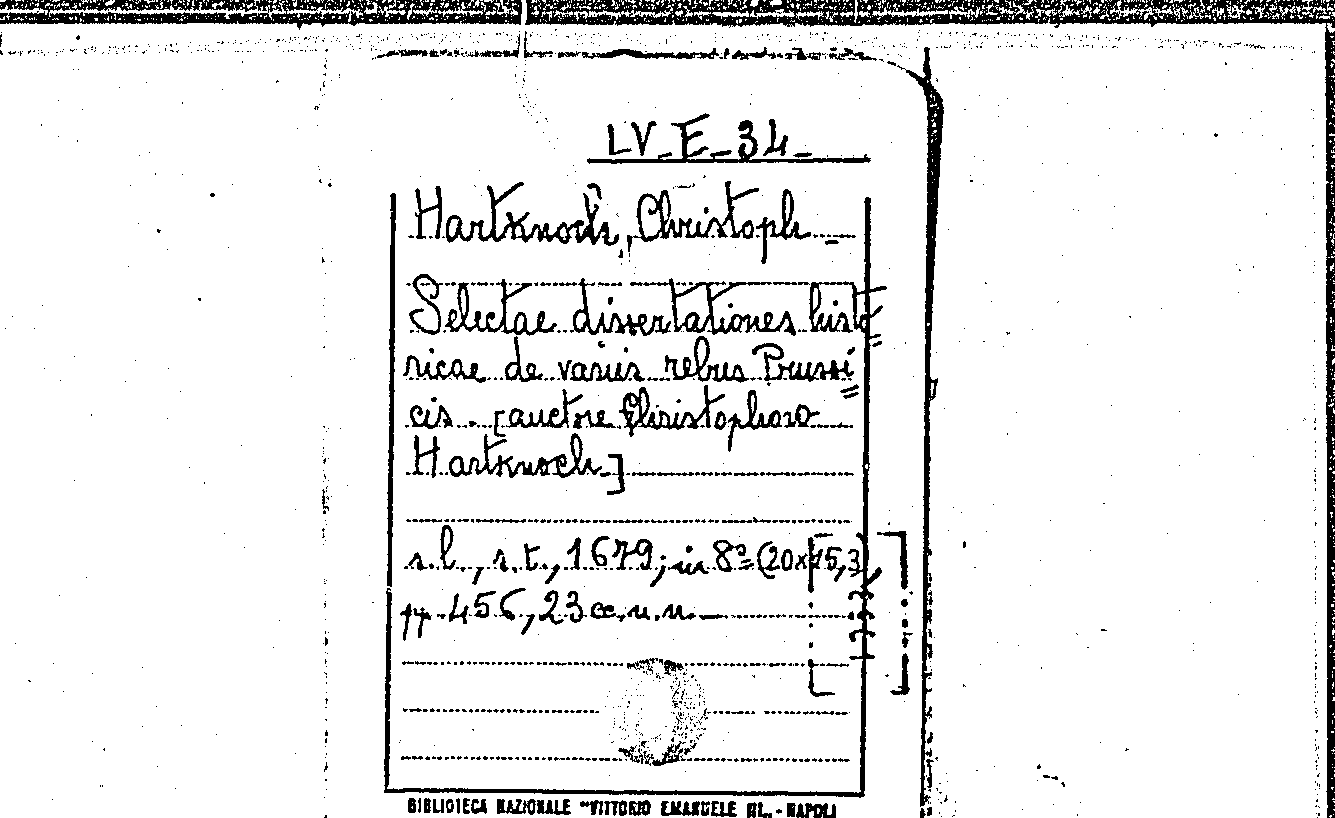 LV_E_34_
Hartknoch, Christoph_
Selectae dissertationes histo=
ricae de variis rebus Prussi=
cis. [auctore Christophoro
Hartknoch]
s.l., s.t., 1679; in 8º (20x15,3)
pp. 456, 23 cc.n.n.
BIBLIOTECA NAZIONALE "VITTORIO EMANUELE III„ - NAPOLI